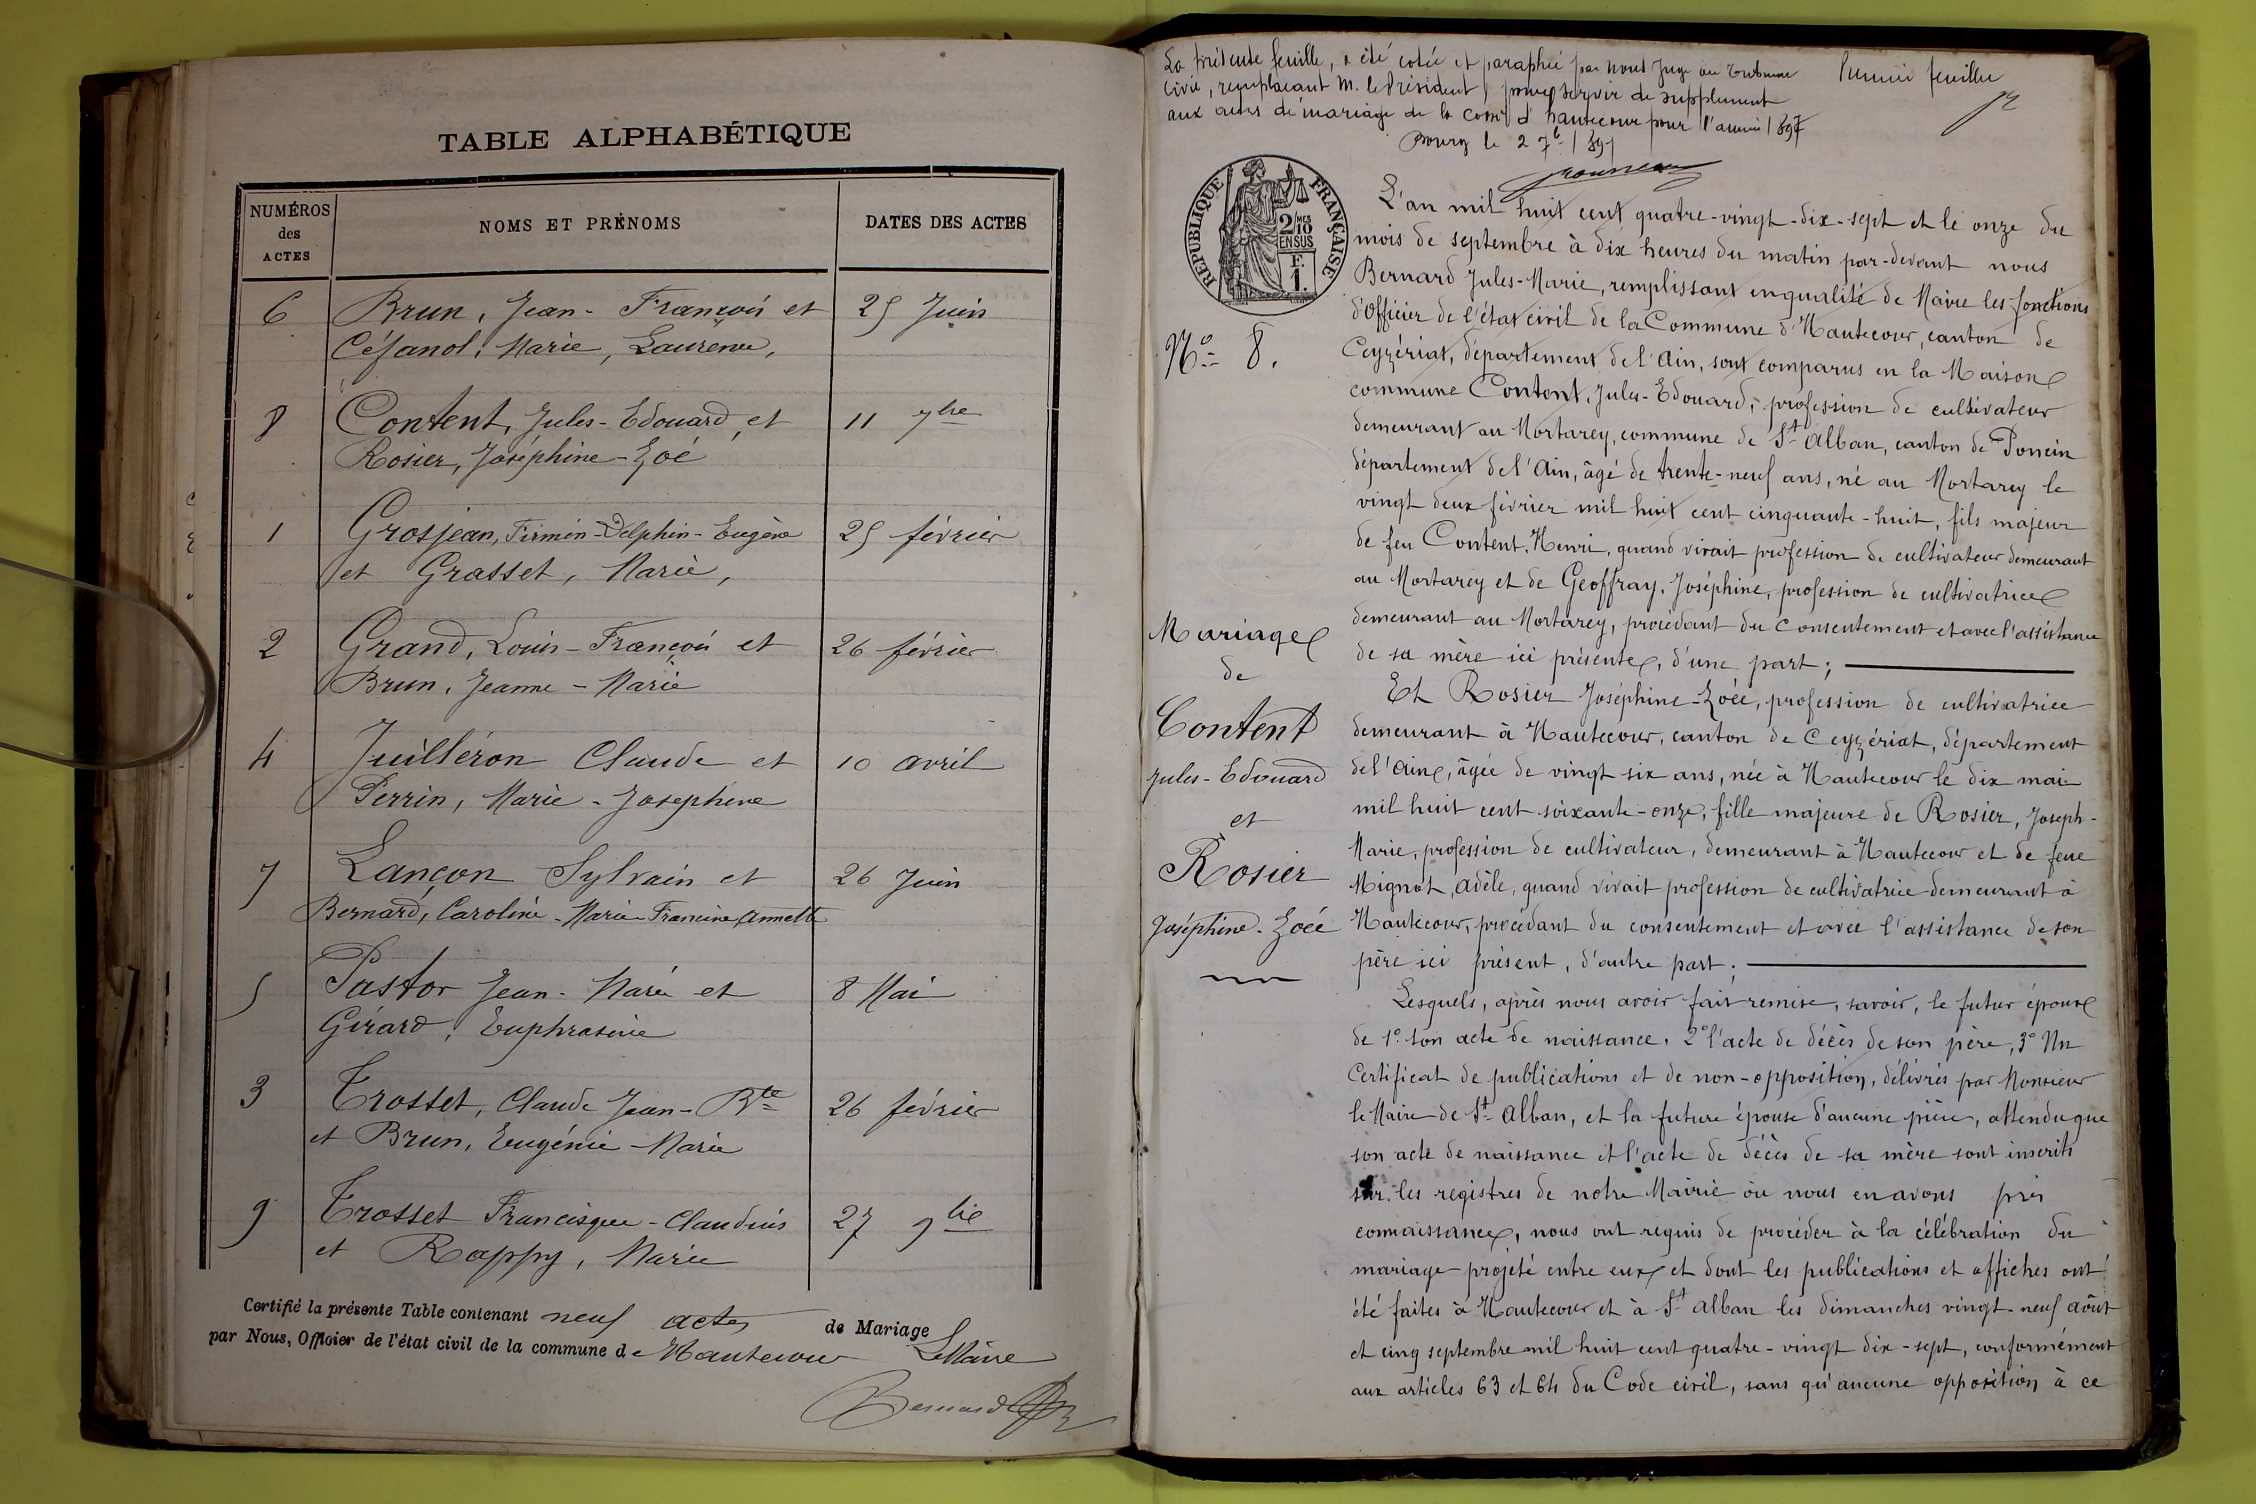 TABLE ALPHABÉTIQUE
NUMÉROS des ACTES
NOMS ET PRÉNOMS
DATES DES ACTES
6 Brun, Jean-François et 25 Juin
Céfanol, Marie, Laurence,
8 Content, Jules-Edouard, et 11 7bre
Rosier, Joséphine-Zoé
1 Grosjean, Firmin-Delphin-Eugène 25 février
et Grasset, Marie,
2 Grand, Louis-François et 26 février
Brun, Jeanne-Marie
4 Juilléron Claude et 10 avril
Perrin, Marie-Josephine
7 Lançon Sylvain et 26 Juin
Bernard, Caroline-Marie-Francine, Annette
5 Pastor Jean-Marie et 8 Mai
Girard, Euphrasine
3 Trosset, Claude Jean-Bte 26 février
et Brun, Eugénie-Marie
9 Trosset Francisque-Claudius 27 9bre
et Rappy, Marie
Certifié la présente Table contenant neuf actes de Mariage
par Nous, Officier de l'état civil de la commune de Hautecour Le Maire
Bernard
La présente feuille, a été cotée et paraphée par nous Juge au Tribunal
civil, remplaçant M. le Président, pour servir de supplément
aux actes de mariage de la comne d'hautecour pour l'année 1897
Bourg le 2 7bre 1897
Premier feuillet
RÉPUBLIQUE FRANÇAISE
2 MES 10
EN SUS
F.
1.
No 8.
Mariage
de
Content
Jules-Edouard
et
Rosier
Joséphine-Zoée
L'an mil huit cent quatre-vingt-dix-sept et le onze du
mois de septembre à dix heures du matin par-devant nous
Bernard Jules-Marie, remplissant en qualité de Maire les fonctions
d'Officier de l'état civil de la Commune d'Hautecour, canton de
Ceyzériat, département de l'Ain, sont comparus en la Maison
commune Content, Jules-Edouard, profession de cultivateur
demeurant au Mortarey, commune de St Alban, canton de Poncin
département de l'Ain, âgé de trente-neuf ans, né au Mortarey le
vingt deux février mil huit cent cinquante-huit, fils majeur
de feu Content, Henri, quand vivait profession de cultivateur demeurant
au Mortarey et de Geoffray, Joséphine, profession de cultivatrice
demeurant au Mortarey, procédant du consentement et avec l'assistance
de sa mère ici présente, d'une part;
Et Rosier Joséphine-Zoée, profession de cultivatrice
demeurant à Hautecour, canton de Ceyzériat, département
de l'Ain, âgée de vingt six ans, née à Hautecour le dix mai
mil huit cent soixante-onze, fille majeure de Rosier, Joseph-
Marie, profession de cultivateur, demeurant à Hautecour et de feue
Mignot, Adèle, quand vivait profession de cultivatrice demeurant à
Hautecour, procédant du consentement et avec l'assistance de son
père ici présent, d'autre part;
Lesquels, après nous avoir fait remise, savoir, le futur époux
de 1° son acte de naissance, 2° l'acte de décès de son père, 3° Un
Certificat de publications et de non-opposition, délivrés par Monsieur
le Maire de St Alban, et la future épouse d'aucune pièce, attendu que
son acte de naissance et l'acte de décès de sa mère sont inscrits
sur les registres de notre Mairie où nous en avons pris
connaissance, nous ont requis de procéder à la célébration du
mariage projeté entre eux et dont les publications et affiches ont
été faites à Hautecour et à St Alban les dimanches vingt-neuf août
et cinq septembre mil huit cent quatre-vingt dix-sept, conformément
aux articles 63 et 64 du Code civil, sans qu'aucune opposition à ce